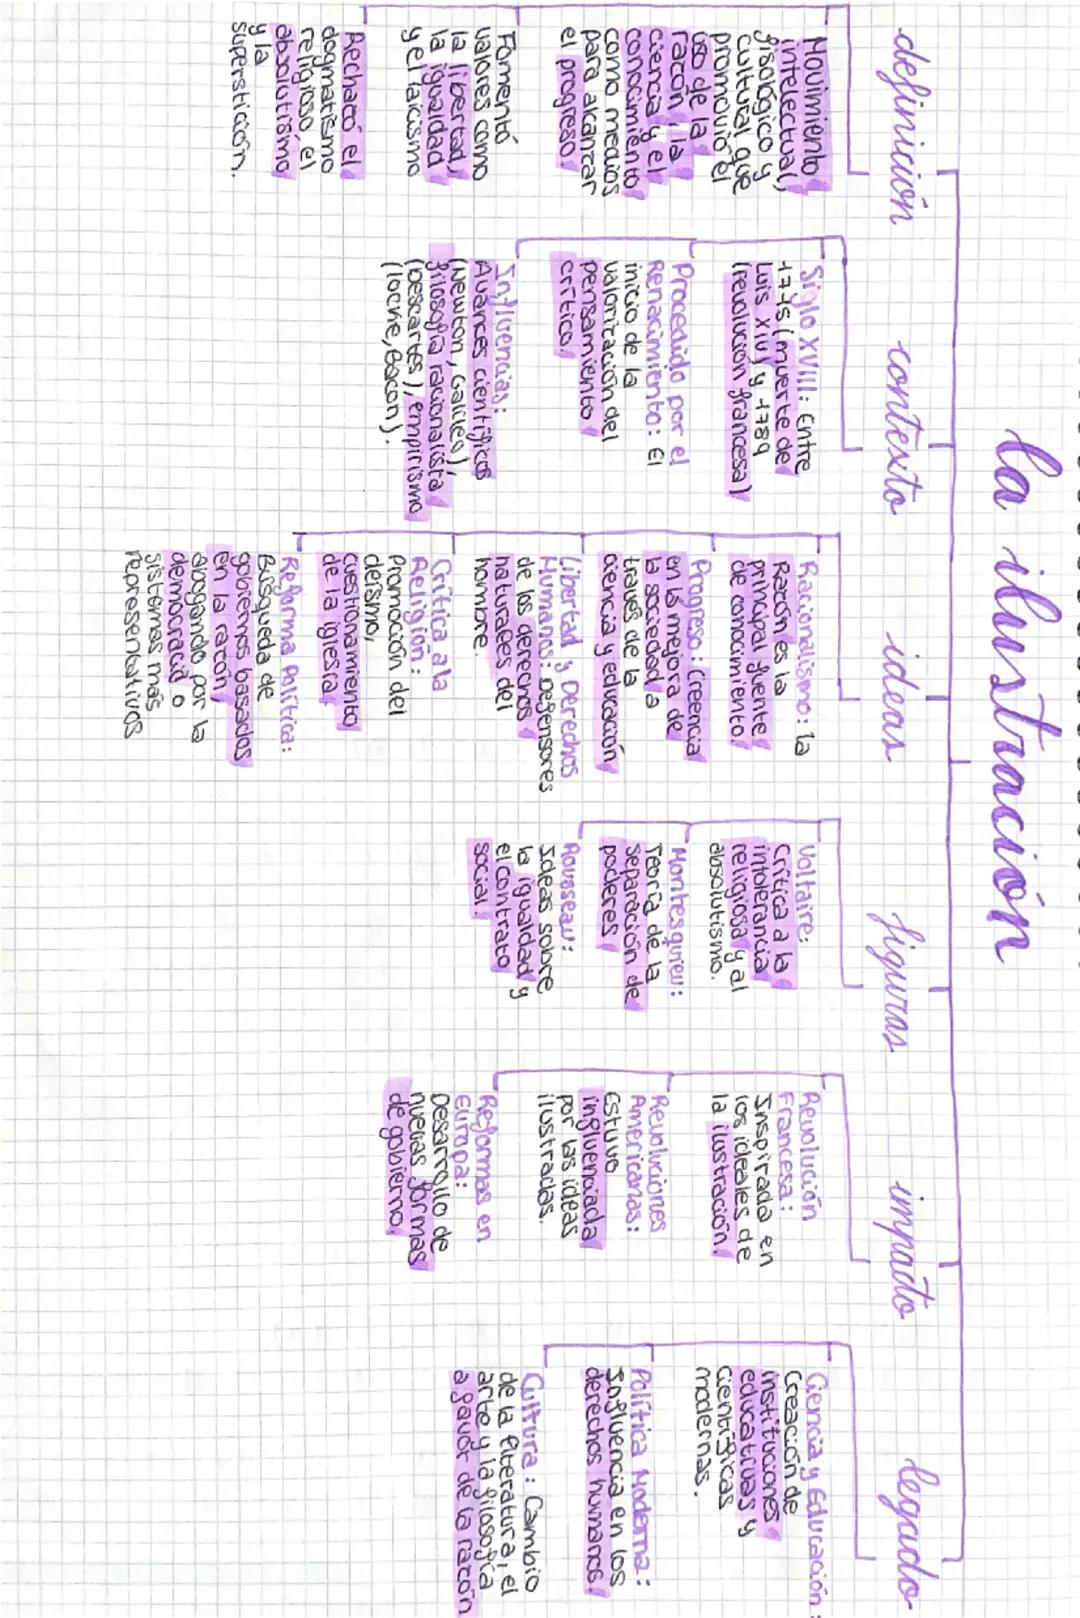 la ilustración
definición
Movimiento
intelectual,
filosófico y
cultural que
promovió el
uso de la
razón, la
ciencia y el
conocimiento
como medios
para alcanzar
el progreso.
Fomentó
valores como
la libertad,
la igualdad
y el laicismo
Rechazó el
dogmatismo
religioso, el
absolutismo
y la
superstición.
contexto
Siglo XVIII: Entre
1715 (muerte de
Luis XIV) y 1789
(revolución francesa)
Procedido por el
Renacimiento: El
inicio de la
valorización del
pensamiento
crítico.
Influencias:
Avances científicos
(Newton, Galileo),
filosofía racionalista
(Descartes), empirismo
(locke, Bacon).
ideas
Racionalismo: la
Razón es la
principal fuente
de conocimiento.
Progreso: Creencia
en la mejora de
la sociedad a
través de la
ciencia y educación
Libertad y Derechos
Humanos: Defensores
de los derechos
naturales del
hombre.
Crítica a la
Religión:
Promoción del
deísmo,
cuestionamiento
de la iglesia
Reforma Política:
Búsqueda de
gobiernos basados
en la razón,
abogando por la
democracia o
sistemas más
representativos
figuras
Voltaire:
Crítica a la
intolerancia
religiosa y al
absolutismo.
Montesquieu:
Teoría de la
separación de
poderes
Rousseau:
Ideas sobre
la igualdad y
el contrato
social
impacto
Revolución
Francesa:
Inspirada en
los ideales de
la ilustración.
Revoluciones
Americanas:
Estuvo
influenciada
por las ideas
ilustradas.
Reformas en
Europa:
Desarrollo de
nuevas formas
de gobierno.
legado
Ciencia y Educación:
Creación de
instituciones
educativas y
científicas
modernas.
Política Moderna:
Influencia en los
derechos humanos.
Cultura: Cambio
de la literatura, el
arte y la filosofía
a favor de la razón